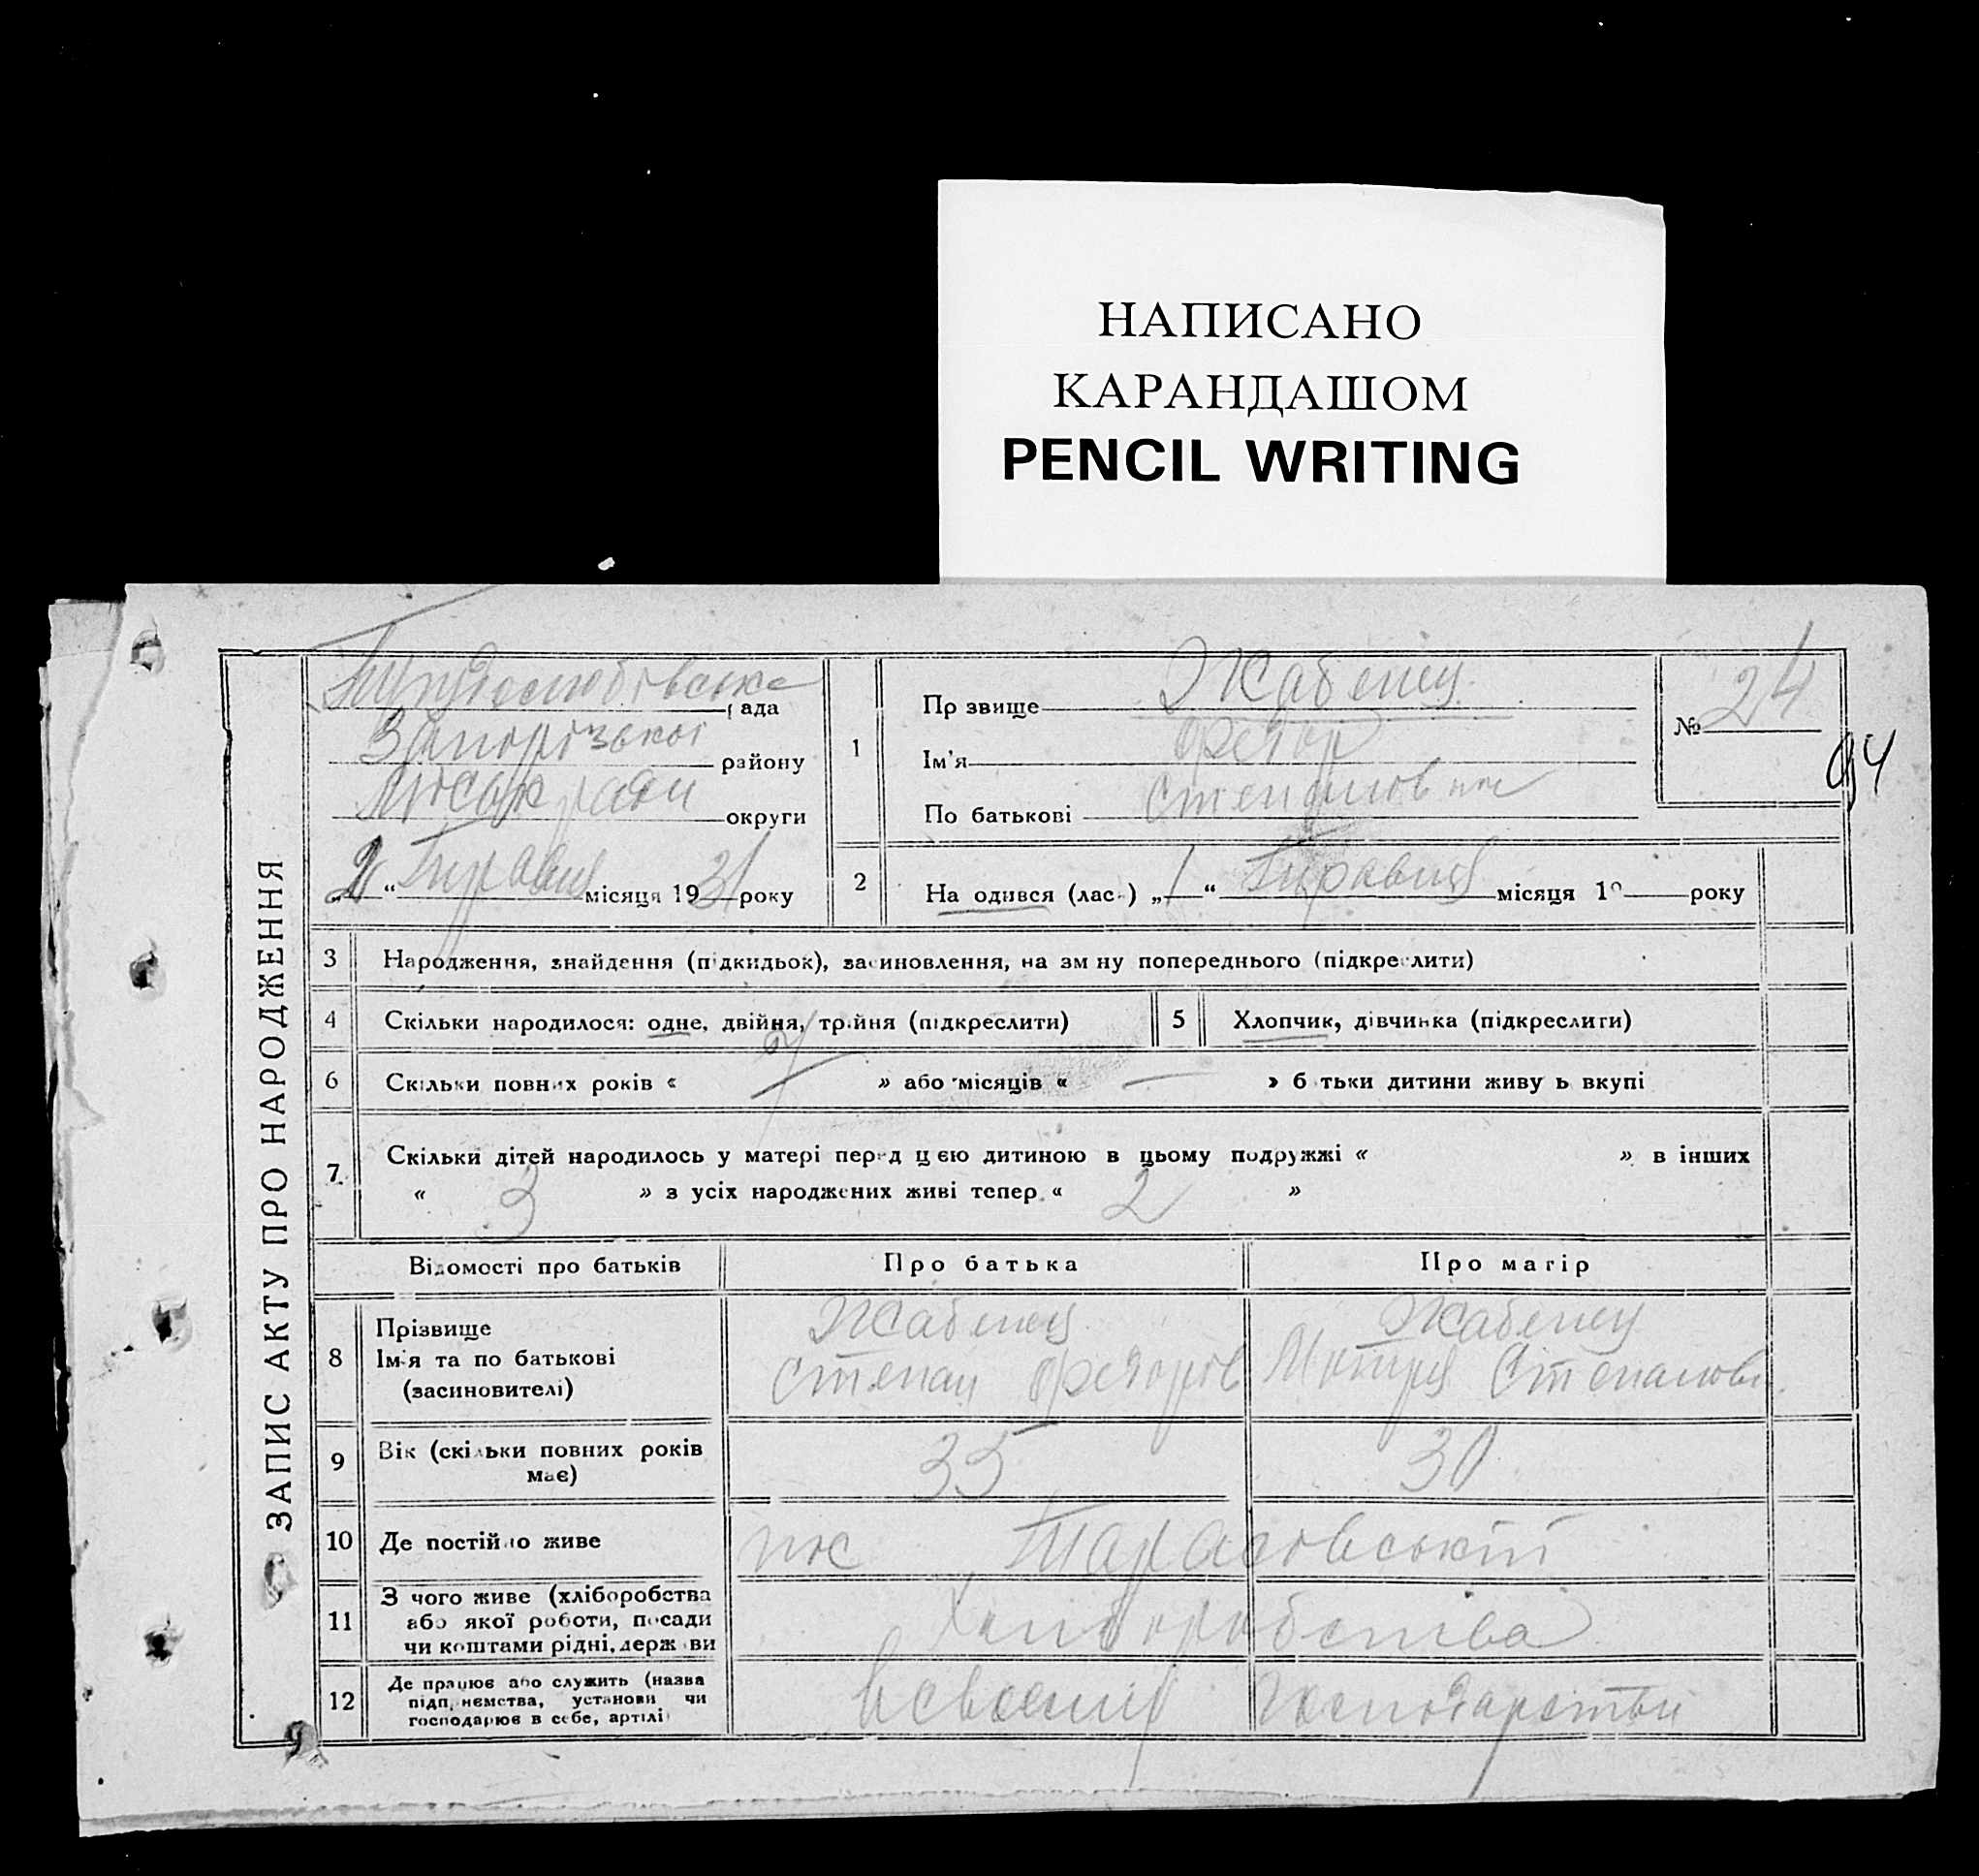 НАПИСАНО
КАРАНДАШОМ
PENCIL WRITING
ЗАПИС АКТУ ПРО НАРОДЖЕННЯ
Трудолюбівська рада
Запорізької району
міськ ради округи
„2“ Травця місяця 1931 року
1
Пр звище Жабенец
Ім'я Федор
По батькові Степанов
№ 24
94
2 На одився (лас ) „1“ Травця місяця 19 року
3 Народження, знайдення (підкидьок), засиновлення, на зм ну попереднього (підкреслити)
4 Скільки народилося: одне, двійня, трійня (підкреслити)
5 Хлопчик, дівчинка (підкреслити)
6 Скільки повних років « 7 » або місяців « — » б тьки дитини живу ь вкупі
7. Скільки дітей народилось у матері перед цією дитиною в цьому подружжі « » в інших
« 3 » з усіх народжених живі тепер « 2 »
Відомості про батьків Про батька Про матір
8 Прізвище
Ім'я та по батькові
(засиновителі)
Жабенец
Степан Федоров
Жабенец
Мотря Степанов
9 Вік (скільки повних років
має)
35 30
10 Де постійно живе
пос Тарасовський
11 З чого живе (хліборобства
або якої роботи, посади
чи коштами рідні, держ ви
Хліборобства
12 Де працює або служить (назва
підп иємства, установи чи
господарює в себе, артілі)
в своему господарстви